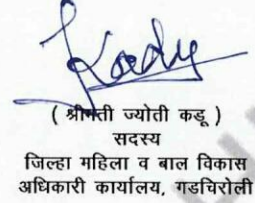 Kadu
( श्रीमती ज्योती कडू )
सदस्य
जिल्हा महिला व बाल विकास
अधिकारी कार्यालय, गडचिरोली